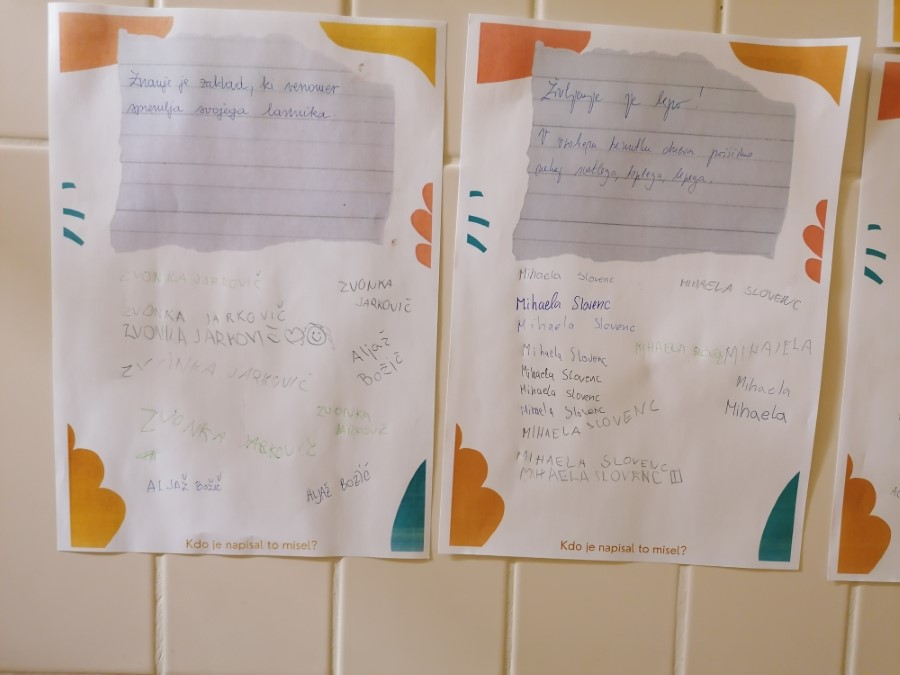 Znanje je zaklad, ki venomer
spremlja svojega lastnika
ZVONKA JARKOVIČ
ZVONKA JARKOVIČ
ZVONKA JARKOVIČ
ZVONKA JARKOVIČ
ZVONKA JARKOVIČ
Aljaž
Božič
ZVONKA JARKOVIČ
ZVONKA
JARKOVIČ
ZVONKA JARKOVIČ
ALJAŽ BOŽIČ
ALJAŽ BOŽIČ
Kdo je napisal to misel?
Življenje je lepo!
V vsakem trenutku dneva poiščimo
nekaj svetlega, toplega, lepega.
Mihaela Slovenc
MIHAELA SLOVENC
Mihaela Slovenc
Mihaela Slovenc
Mihaela Slovenc
MIHAELA
MIHAJELA
Mihaela Slovenc
Mihaela
Mihaela Slovenc
Mihaela
Mihaela Slovenc
MIHAELA SLOVENC
MIHAELA SLOVENC
MIHAELA SLOVENC
Kdo je napisal to misel?